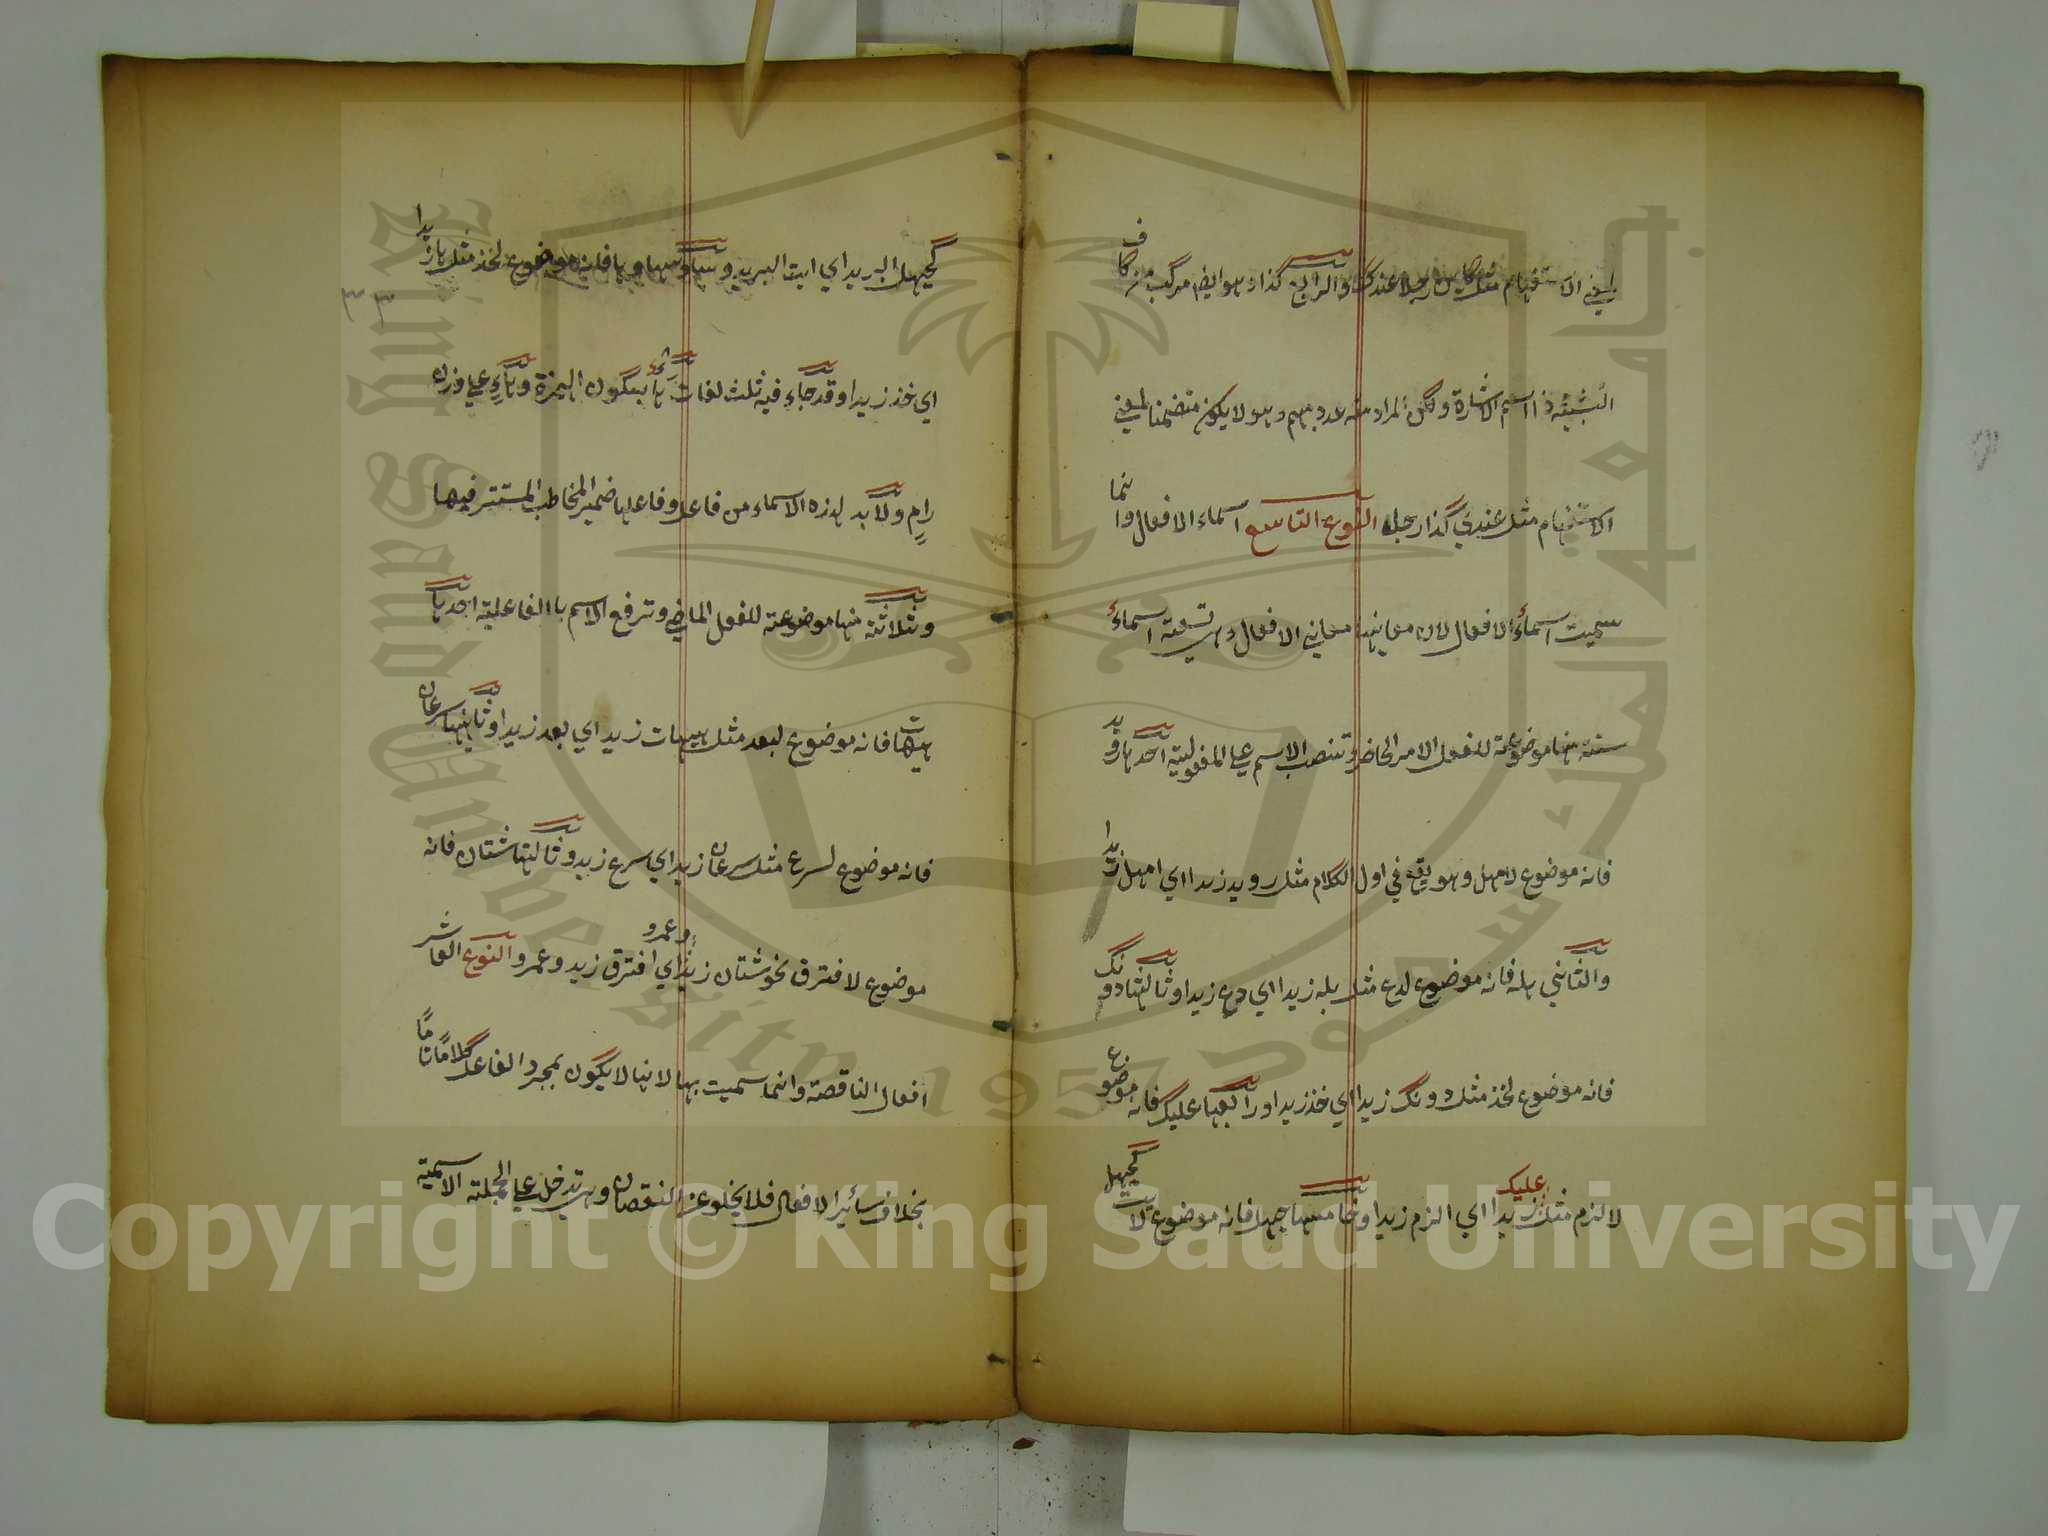 لمعني الاستفهام مثل كاين رجلا عندك والرابع كذا وهو ايضا مركب من كاف
التشبيه وذا اسم الاشارة ولكن المراد منه عدد مبهم وهو لا يكون متضمنا لمعني
الاستفهام مثل عندي كذا رجلا النوع التاسع اسماء الافعال وانما
سميت اسماء الافعال لان معانيها معاني الافعال وهي تسعة اسماء
ستة منها موضوعة للفعل الامر الحاضر وتنصب الاسم علي المفعولية احدها رويد
فانه موضوع لامهل وهو يقع في اول الكلام مثل رويد زيدا اي امهل زيدا
والثاني بله فانه موضوع لدع مثل بله زيدا اي دع زيدا وثالثها دونك
فانه موضوع لخذ مثل دونك زيدا اي خذ زيدا ورابعها عليك فانه موضوع
لالزم مثل عليك زيدا اي الزم زيدا وخامسها حيهل فانه موضوع لايت
كحيهل البريد اي ايت البريد وسادسها وها فانه موضوع لخذ مثل ها زيدا
اي خذ زيدا وقد جاء فيه ثلث لغات هأ بسكون الهمزة وهاء علي وزن
رام ولا بد لهذه الاسماء من فاعل وفاعلها ضمير المخاطب المستتر فيها
وثلاثة منها موضوعة للفعل الماضي وترفع الاسم بالفاعلية احدها
هيهات فانه موضوع لبعد مثل هيهات زيد اي بعد زيدا وثانيها سرعان
فانه موضوع لسرع مثل سرعان زيد اي سرع زيد وثالثها شتان فانه
موضوع لافترق نحو شتان زيد وعمرو اي افترق زيد وعمرو النوع العاشر
افعال الناقصة وانما سميت بها لانها لا يكون بمجرد الفاعل كلاما تاما
بخلاف سائر الافعال فلا يخلو عن النقصان وهي تدخل علي الجملة الاسمية
٣٣
جامعة الملك سعود
King Saud University
1957
Copyright © King Saud University